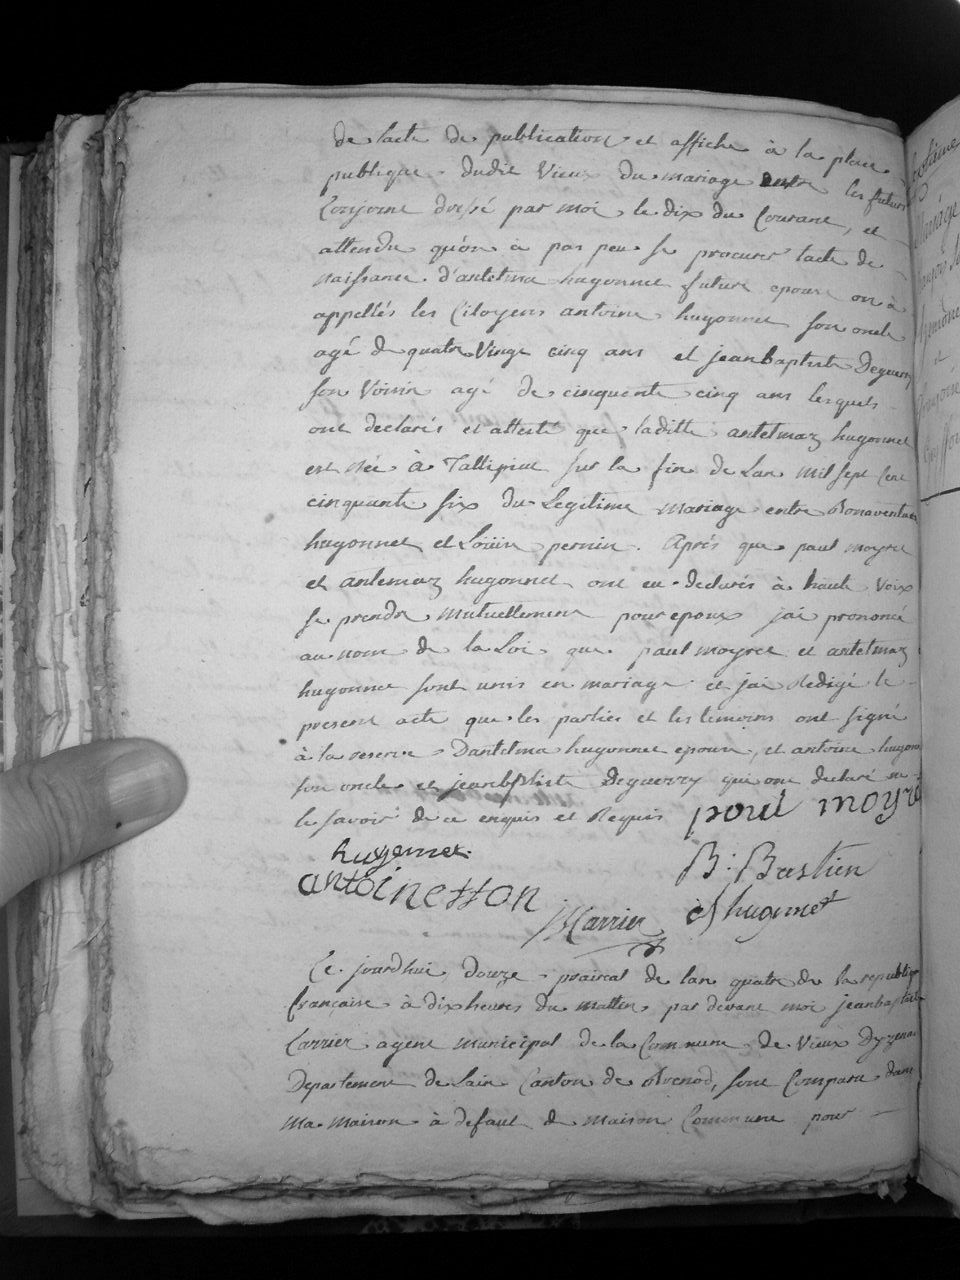 de lacte de publication et affiche à la place
publique dudit Vieux du mariage entre les futurs
Conjoint dressé par moi le dix du Courant, et
attendu quon à pas peu se procurer lacte de
naissance d'antelma hugonnet future epouse on à
appellés les Citoyens antoine hugonnet son oncle
agé de quatre Vingt cinq ans et jeanbaptiste Deguerry
son Voisin agé de cinquante cinq ans lesquels
ont declarés et attesté que laditte antelmaz hugonnet
est née à Tallipiat sur la fin de Lan mil sept Cent
cinquante six du Legitime mariage entre Bonaventure
hugonnet et Loüise pernin. Après que paul moyret
et antemaz hugonnet ont eu declarés à haute Voix
se prendre mutuellement pour epoux jai prononcé
au nom de la Loi que paul moyret et antelmaz
hugonnet sont unis en mariage et jai Redigé le
present acte que les parties et les temoins ont signé
à la reserve Dantelma hugonnet epouse, et antoine hugonnet
son oncle et jeanbptist Deguerry qui ont declaré ne
le savoir de ce enquis et Requis poul moyré
hugonnet B: Bastien
antoinetton
Carrier hugonnet
Ce jourdhui Douze prairial de lan quatre de la republique
française à dix heures du mattin par devant moi jeanbaptiste
Carrier agent municipal de la Commune de Vieux Dyzenave
Departement de Lain Canton de Brenod, sont Comparu dans
ma maison à defaut de maison Commune pour
mariage
et